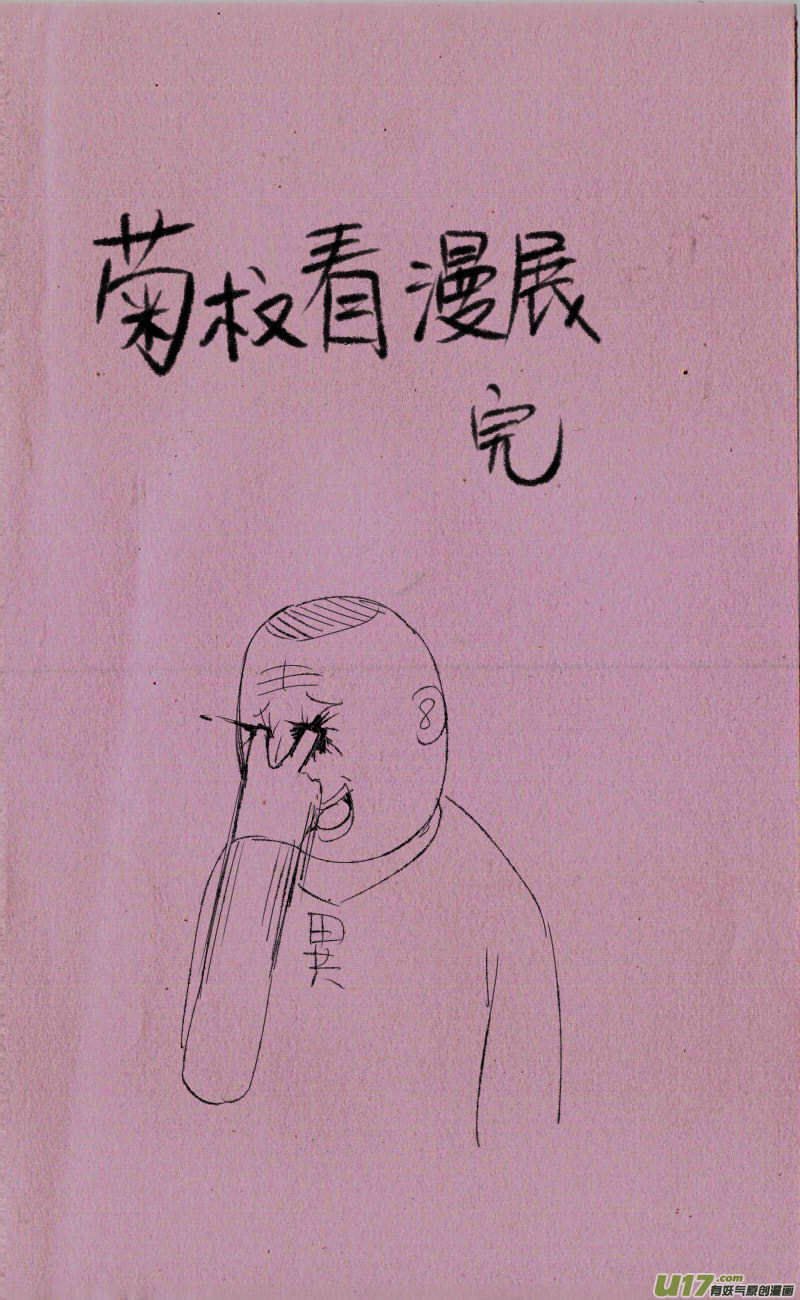 菊叔看漫展
完
異
U17.com
有妖气原创漫画